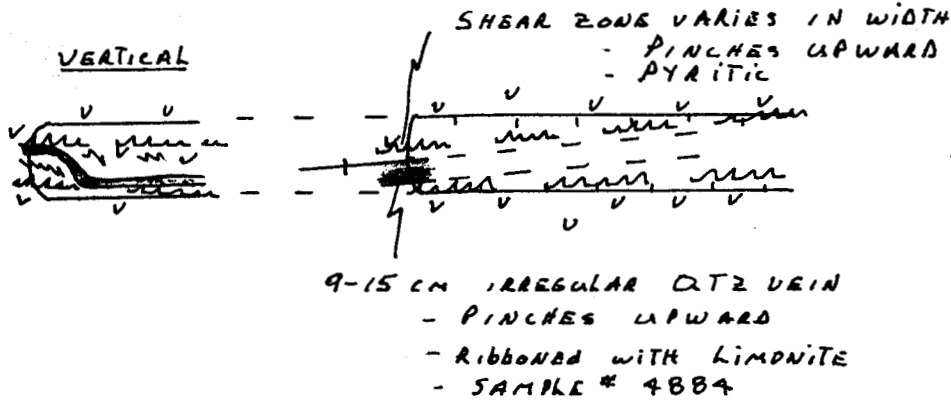 SHEAR ZONE VARIES IN WIDTH
- PINCHES UPWARD
- PYRITIC
VERTICAL
9-15 CM IRREGULAR QTZ VEIN
- PINCHES UPWARD
- RIBBONED WITH LIMONITE
- SAMPLE # 4884